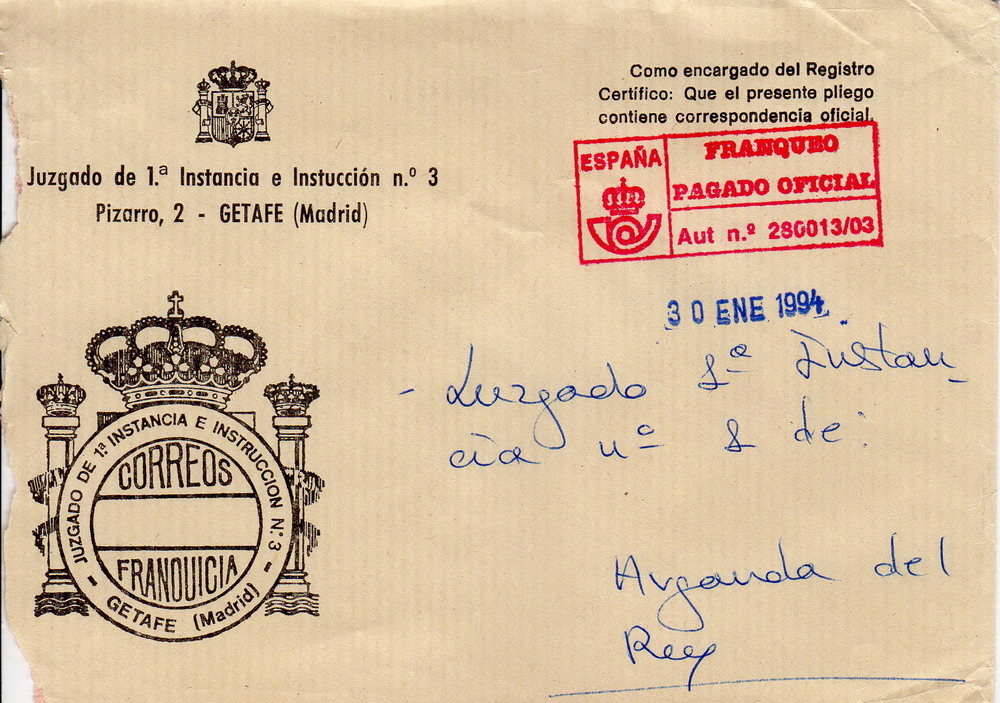 Juzgado de 1.ª Instancia e Instucción n.º 3
Pizarro, 2 - GETAFE (Madrid)
Como encargado del Registro
Certífico: Que el presente pliego
contiene correspondencia oficial.
ESPAÑA
FRANQUEO
PAGADO OFICIAL
Aut n.º 280013/03
30 ENE 1994
- Juzgado 1ª Instan_
cia nº 1 de:
Arganda del
Rey
JUZGADO DE 1ª INSTANCIA E INSTRUCCION N.º 3
CORREOS
FRANQUICIA
- GETAFE (Madrid) -